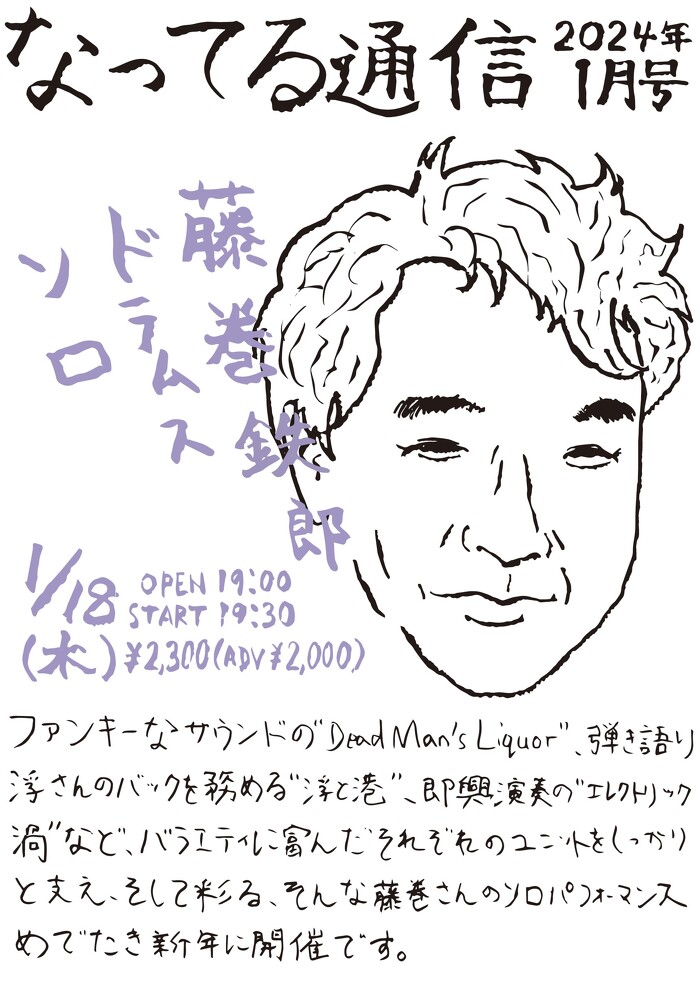 なってる通信
2024年
1月号
藤巻鉄郎
ドラムス
ソロ
1/18
(木)
OPEN 19:00
START 19:30
¥2,300(ADV ¥2,000)
ファンキーなサウンドの"Dead Man's Liquor"、弾き語り
浮さんのバックを務める"浮と港"、即興演奏の"エレクトリック
渦"など、バラエティに富んだそれぞれのユニットをしっかり
と支え、そして彩る、そんな藤巻さんのソロパフォーマンス
めでたき新年に開催です。